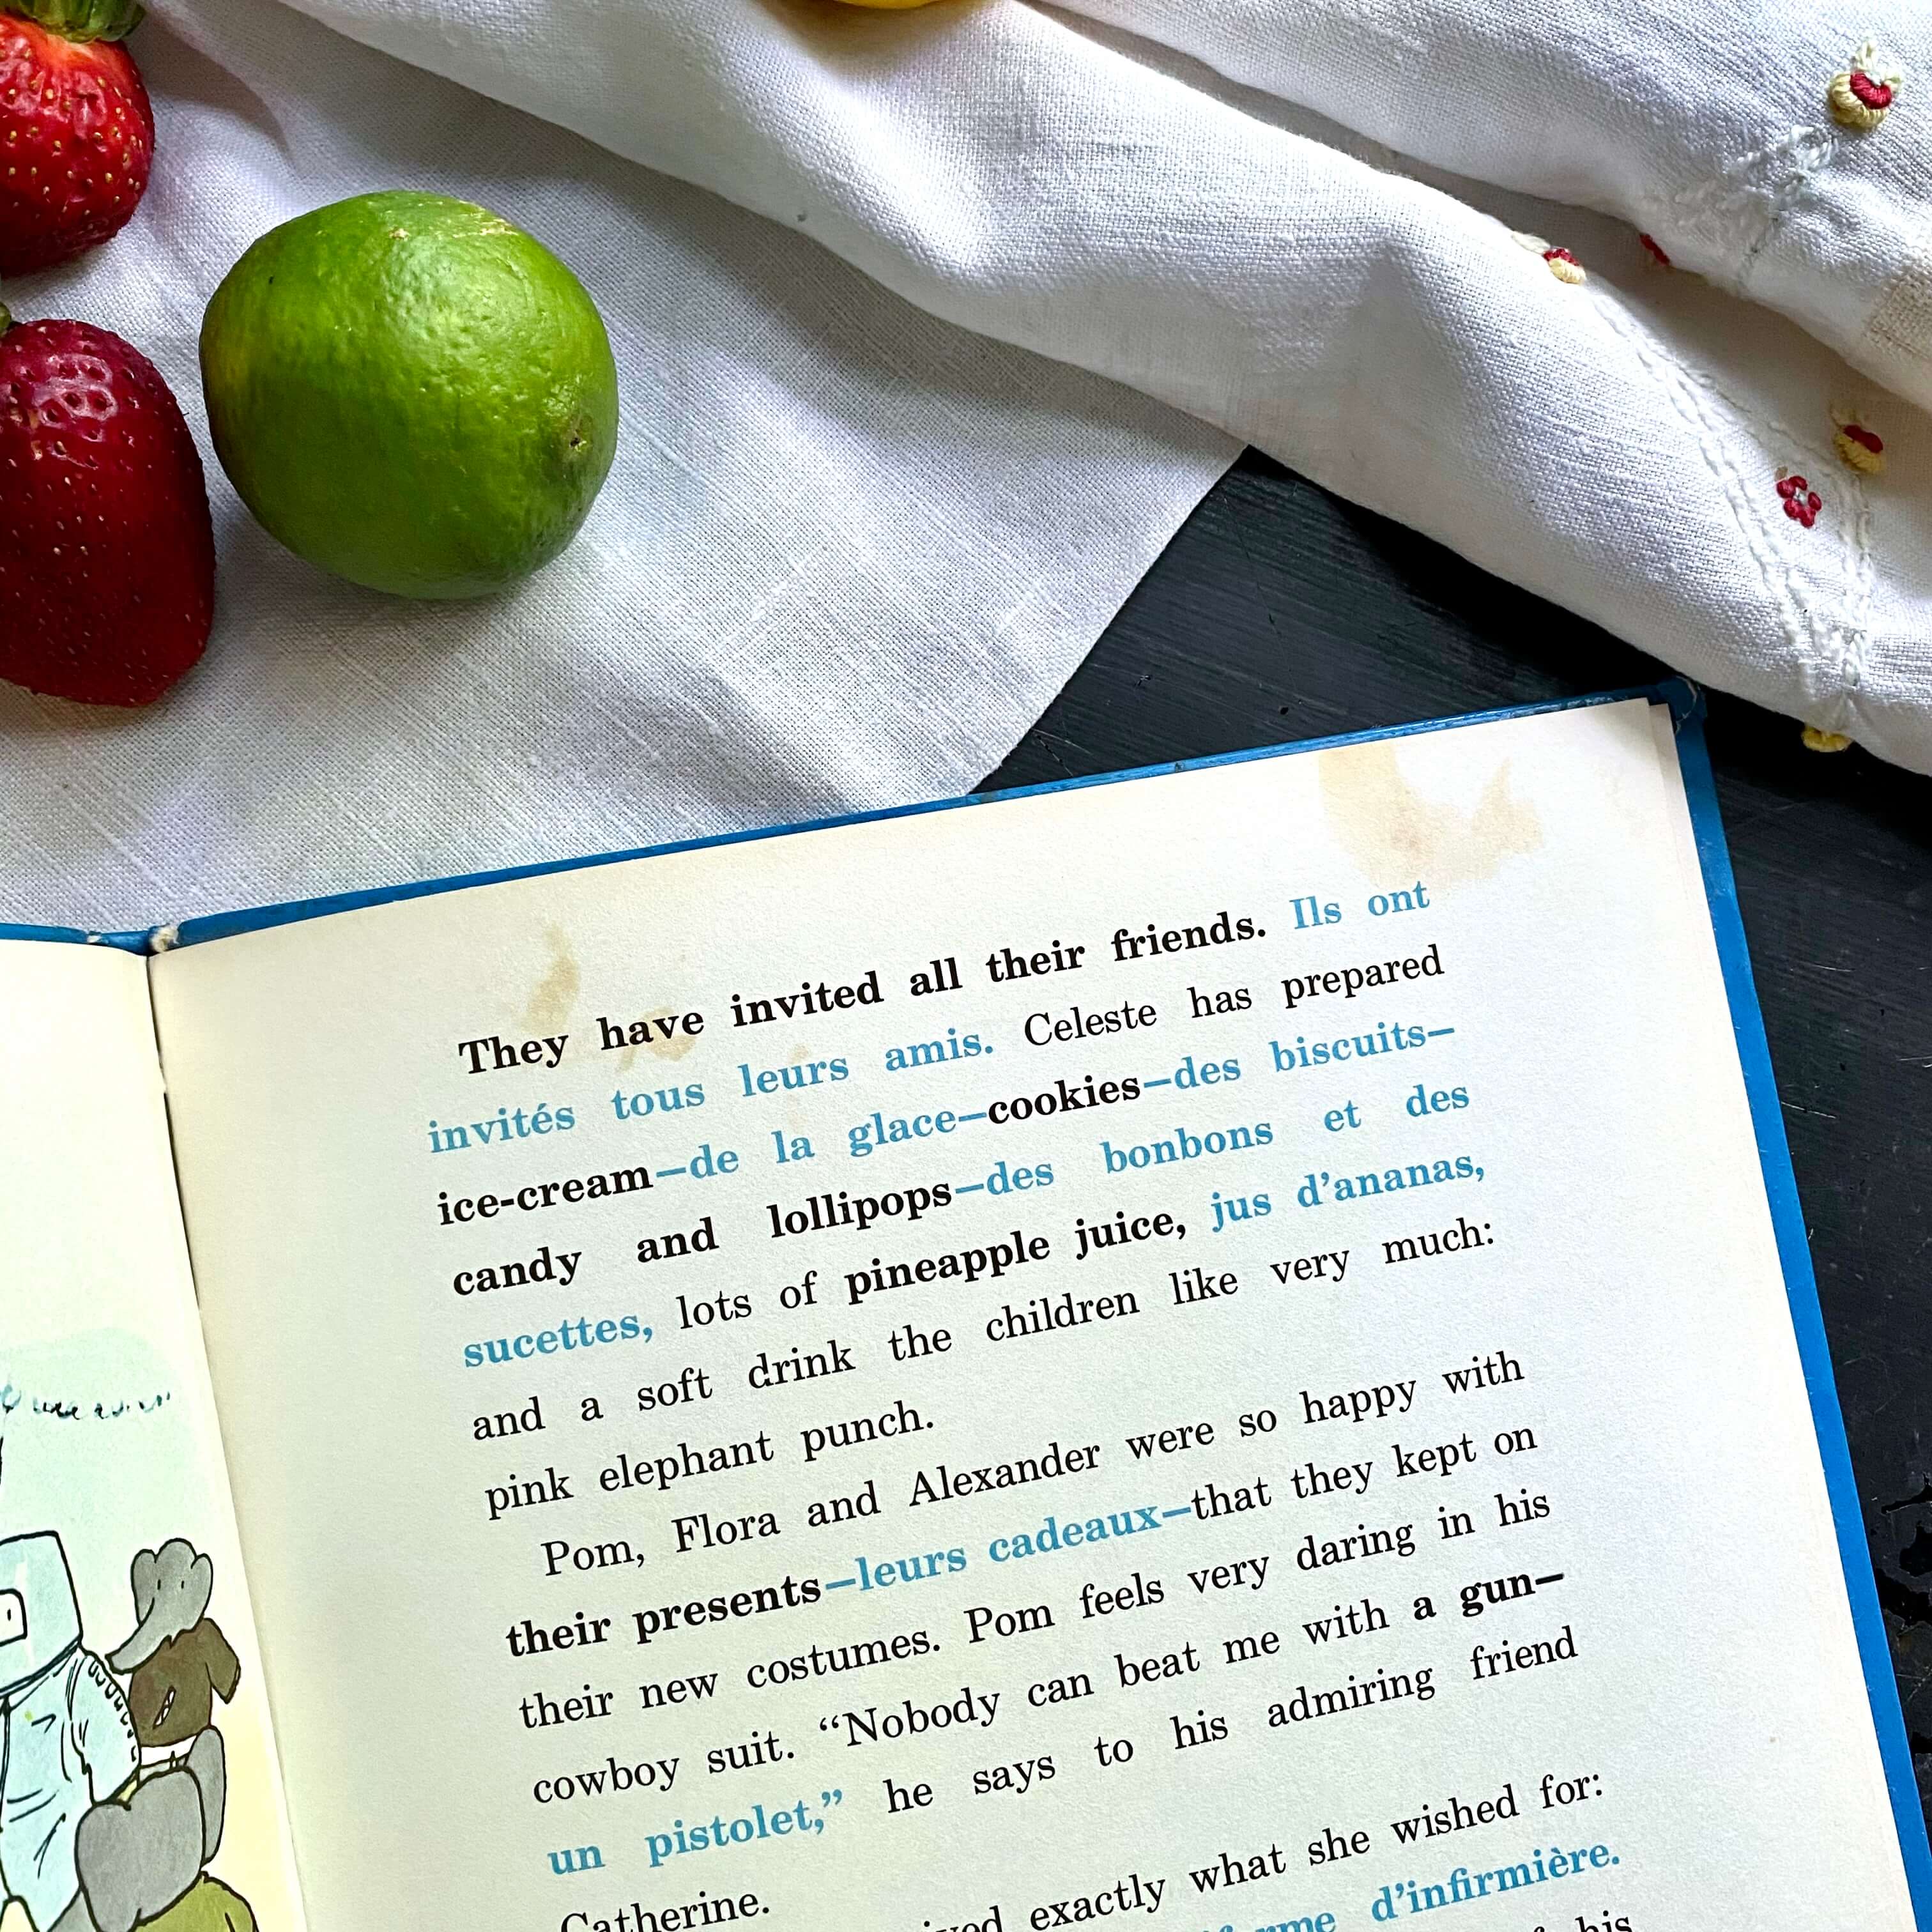 They have invited all their friends. Ils ont
invités tous leurs amis. Celeste has prepared
ice-cream—de la glace—cookies—des biscuits—
candy and lollipops—des bonbons et des
sucettes, lots of pineapple juice, jus d'ananas,
and a soft drink the children like very much:
pink elephant punch.
Pom, Flora and Alexander were so happy with
their presents—leurs cadeaux—that they kept on
their new costumes. Pom feels very daring in his
cowboy suit. “Nobody can beat me with a gun—
un pistolet,” he says to his admiring friend
Catherine.
exactly what she wished for:
d'infirmière.
his